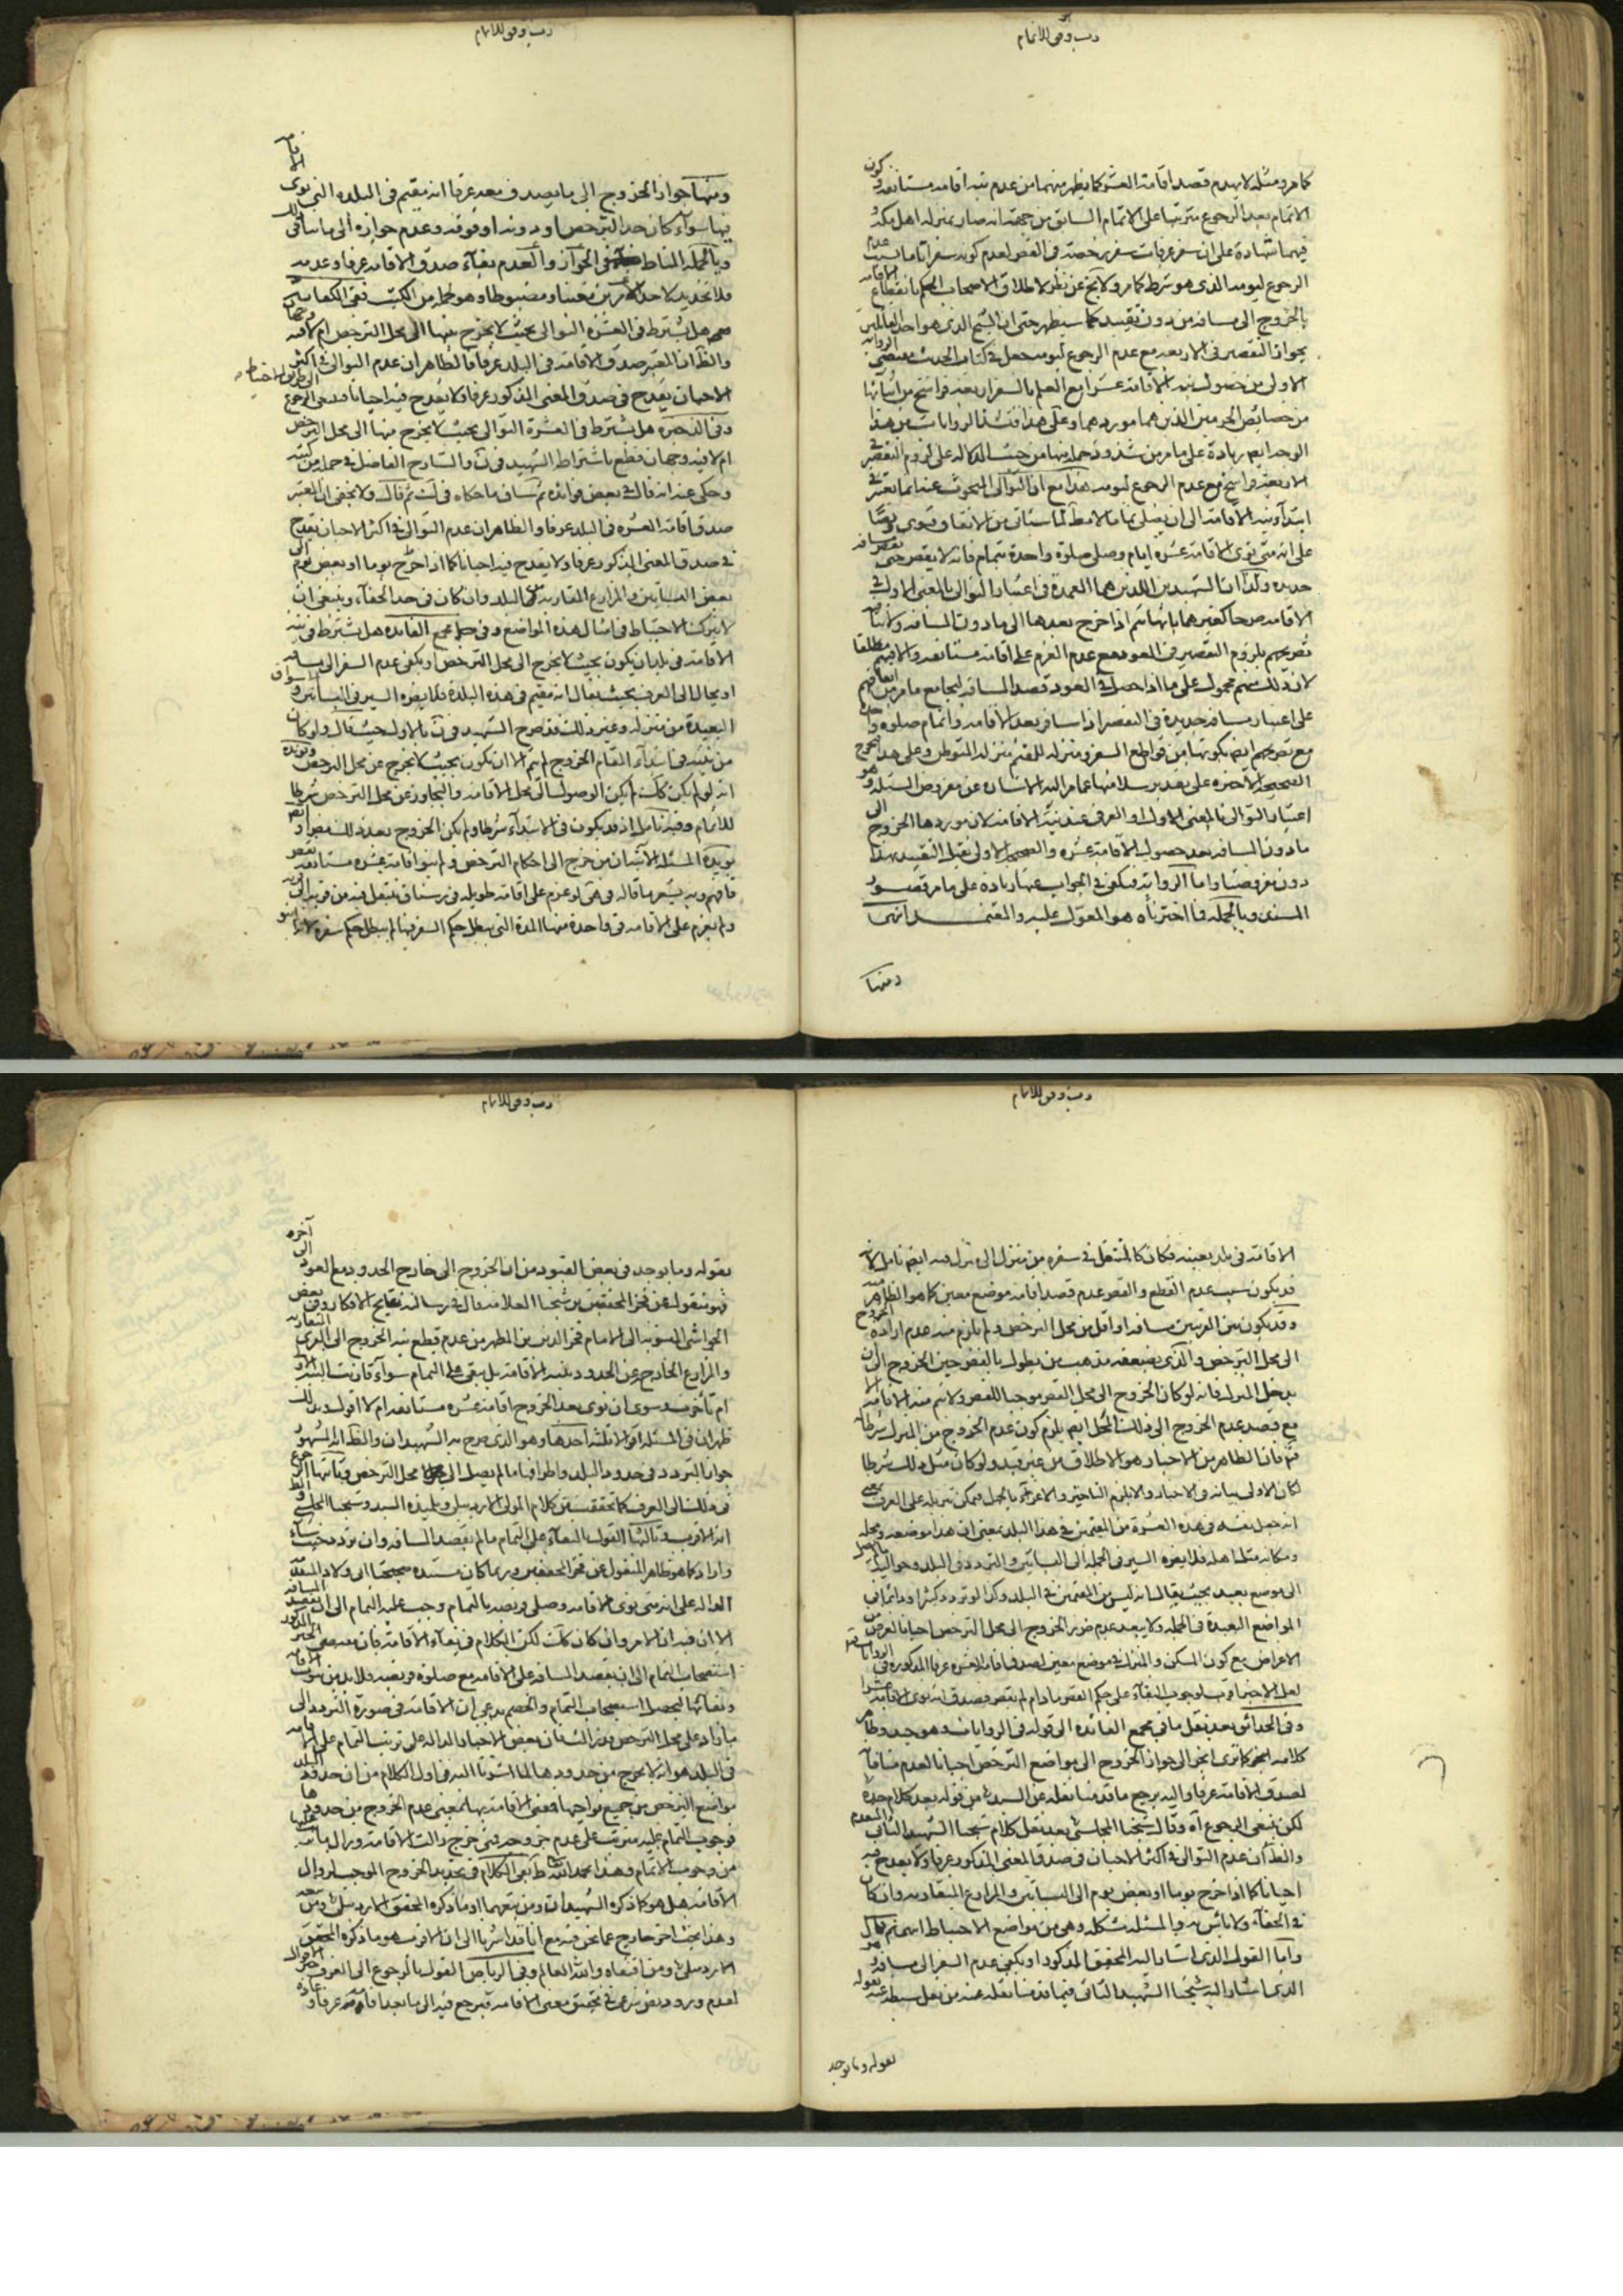 كما مر ومثله لا يهدم قصد اقامة العشر كما يظهر منهما من عدم نية اقامة مستانفة وكون
الاتمام بعد الرجوع مترتبا على الاتمام السابق من جهة انه صار بمنزلة اهل مكة
فيهما شهادة على ان سفر عرفات سفر يرخصه في القصر لعدم كونه سفرا
الرجوع ليومه الذي هو شرط كما مر ولا
بالخروج الى مسافة من دون تقييد كما سيظهر حتى ان الشيخ الذي هو احد القائلين
بجواز التقصير في الاربعة مع عدم الرجوع ليومه جعل في كتاب الحديث مقتضى الرواية
الاولى من حصول نية الاقامة عشرا مع العلم بالسفر اربعة فراسخ من اثنائها
من خصايص الحرمين الذين هما موردهما وعلى هذا
الوجه ايضا زيادة على ما مر من شذوذ من حيث الدلالة على لزوم التقصير في
الاربعة فراسخ مع عدم الرجوع ليومه هذا مع ان التوالى المبحوث عنه انما يعتبر في
ابتداء نية الاقامة الى ان يصلى تماما لا مطلقا لما سيأتى من الاتفاق فتوى ونصا
على انه متى نوى الاقامة عشرة ايام وصلى صلوة واحدة بتمام فانه لا يقصر حتى يقصد مسافة
جديدة ولذا ان الشهيدين اللذين هما العمدة في اعتبار التوالى بالمعنى الاول في
الاقامة صرحا كغيرهما بانهما اذا خرج بعدها الى ما دون المسافة
تصريحهم بلزوم التقصير في العود مع عدم العزم على اقامة مستانفة والا فيتم مطلقا
لان ذلك منهم محمول على ما اذا حصل في العود قصد المسافة ليجامع ما مر من
على اعتبار مسافة جديدة في التقصير اذا سافر بعد الاقامة واتمام صلوة واحدة
مع تصريحهم ايضا بكونها من قواطع السفر ومنزلة للمقيم منزلة المتوطن وعلى هذا
الصحيحة الاخيرة على تقدير سلامتها عما مر اليه الاشارة عن مفروض المسئلة وهو
اعتبار التوالى بالمعنى الاول او العرفى عند نية الاقامة لان موردها الخروج الى
ما دون المسافة بعد حصول الاقامة عشرة والصحيحة الاولى تقبل التقييد بهذا
دون مفروضنا واما الرواية فيكفى في الجواب عنها زيادة على ما مر قصور
السند وبالجملة فما اخترناه هو المعول عليه والمعتمد
ومنها
ومنها جواز الخروج الى ما يصدق معه عرفا انه مقيم في البلدة التي نوى الاقامة
فيها سواء كان حد الترخص او دونه او فوقه وعدم جوازه الى ما ينافى ذلك
وبالجملة المناط في الجواز والعدم بقاء صدق الاقامة عرفا وعدمه
فلا تحديد لاحد الامرين معينا ومضبوطا وهو لجملة من الكتب ففى الكفاية
هل يشترط في العشرة التوالى بحيث لا يخرج بينها الى محل الترخص ام لا فيه وجهان
والظ ان المعتبر صدق الاقامة في البلد عرفا فالظاهر ان عدم التوالى في اكثر
الاحيان يقدح في صدق المعنى المذكور عرفا ولا يقدح فيه احيانا فينبغى الرجوع
وفى الذخيرة هل يشترط في العشرة التوالى بحيث لا يخرج منها الى محل الترخص
ام لا فيه وجهان قطع باشتراط الشهيد فى ن والشارح الفاضل في جملة من كتبه
وحكى عنه انه قال في بعض فوائده ثم ساق ما حكاه فى لك ثم قال ولا يخفى ان المعتبر
صدق اقامة العشرة في البلد عرفا والظاهر ان عدم التوالى في اكثر الاحيان يقدح
في صدق المعنى المذكور عرفا ولا يقدح فيه احيانا كما اذا خرج يوما او بعض يوم الى
بعض البساتين والمزارع المقاربة من البلد وان كان فى حد الخفاء وينبغى ان
لا يترك الاحتياط فى امثال هذه المواضع وفى مجمع الفائدة هل يشترط فى نية
الاقامة فى بلد ان يكون بحيث لا يخرج الى محل الترخص او يكفى عدم السفر الى مسافة
او يحال الى العرف بحيث يقال انه مقيم فى هذه البلدة فلا يضره السير في البساتين والاسواق
البعيدة من منزله وغير ذلك فقد صرح الشهيد فى ن بالاول حيث قال ولو كان
من نيته فى ابتداء المقام الخروج لم يتم الا ان يكون بحيث لا يخرج عن محل الترخص ويؤيده
انه لو لم يكن كذلك لم يكن الوصول الى محل الاقامة والتجاوز عن محل الترخص شرطا
للاتمام وفيه تامل اذ قد يكون فى الابتداء شرطا ولم يكن الخروج بعد ذلك
يؤيده المسئلة الاتية ان من خرج الى احكام الترخص ولم ينو اقامة عشرة مستانفة يقصر
فافهم وبه يشعر ما قاله فى هى لو عزم على اقامة طويلة فى رستاق ينتقل فيه من قرية الى قرية
ولم يعزم على الاقامة فى واحدة منها المدة التي يبطل حكم السفر فيها لم يبطل حكم سفره لانه لم ينو
الاقامة فى بلد بعينه فكان كالمتنقل في سفره من منزل الى منزل فيه ايضا تامل لانه
قد يكون سبب عدم القطع والقصر عدم قصد اقامة موضع معين كما هو الظاهر منه
وقد يكون بين القريتين مسافة او اقل من محل الترخص ولم يلزم منه عدم ارادة الخروج
الى محل الترخص والذي يضعفه مذهب من يقول بالقصر حين الخروج الى ان
يدخل المنزل فانه لو كان الخروج الى محل القصر موجبا للقصر ولا يتم منه الاقامة الا
مع قصد عدم الخروج الى ذلك المحل ايضا يلزم كون عدم الخروج من المنزل شرطا
فت فان الظاهر من الاخبار هو الاطلاق من غير قيد ولو كان مثل ذلك شرطا
لكان الاولى بيانه فى الاخبار والا يلزم التاخير والاغراء بالجهل فيمكن تنزيله على العرف بمعنى
انه جعل نفسه فى هذه العشرة من المقيمين في هذا البلد بمعنى ان هذا موضعه ومحله
ومكانه مثل اهله فلا يضره السير فى الجملة الى البساتين والتردد فى البلد وحواليه
الى موضع بعيد بحيث يقال انه ليس من المقيمين في البلد وكذا لو تردد كثيرا ودائما فى
المواضع البعيدة فى الجملة ولا يبعد عدم ضرر الخروج الى محل الترخص احيانا لغرض من
الاغراض مع كون المسكن والمنزل في موضع معين لصدق اقامة العشرة عرفا المذكورة فى الروايات
وفى الحدائق بعد نقل ما فى مجمع الفائدة الى قوله فى الروايات وهو جيد وظاهر
كلامه كما ترى انجر الى جواز الخروج الى مواضع الترخص احيانا لعدم منافاته
لصدق الاقامة عرفا واليه يرجع ما قدمنا نقله عن السيد من قوله بعد كلام جده
لكن ينبغى الرجوع اه وقال شيخنا المجلسى بعد نقل كلام شيخنا الشهيد الثانى المتقدم
والظ ان عدم التوالى في اكثر الاحيان فى صدق المعنى المذكور عرفا ولا يقدح فيه
احيانا كما اذا خرج يوما او بعض يوم الى البساتين والمزارع المتقاربة وان كان
في الخفاء ولا باس به والمسئلة مشكلة وهى من مواضع الاحتياط انتهى ثم قال
واما القول الذى اشار اليه المحقق المذكور او يكفى عدم السفر الى مسافة هو
الذى اشار اليه شيخنا الشهيد الثانى فيما قدمنا نقله عنه من نقل سبطه عنه بقوله
بقوله وما يوجد
بقوله وما يوجد فى بعض القيود من ان الخروج الى خارج الحدود مع العود الى آخره
فهو منقول عن فخر المحققين بن شيخنا العلامة قال في رسالة نتايج الافكار وفى بعض
الحواشى المنسوبة الى الامام فخر الدين بن المطهر من عدم قطع نية الخروج الى القرى المتقاربة
والمزارع الخارجة عن الحدود بنية الاقامة بل يبقى على التمام سواء قارنت النية الاولى
ام تاخرت وسوى ان نوى بعد الخروج اقامة عشرة مستانفة ام لا اقول وبذلك
ظهر ان فى المسئلة اقوالا ثلثة احدها وهو الذى صرح به الشهيدان والظ انه المشهور
جواز التردد فى حدود البلد واطرافها ما لم يصل الى محل الترخص وثانيها الرجوع
فى ذلك الى العرف كما تحققت من كلام المولى الاردبيلى وتلميذه السيد وشيخنا المجلسى والظ
انه الاقرب وثالثها القول بالبقاء على التمام ما لم يقصد المسافة وان تردد حيث شاء
واراد كما هو ظاهر المنقول عن فخر المحققين وربما كان مستنده صحيحة ابى ولاد المتقدمة
الدالة على انه متى نوى الاقامة وصلى فريضة بالتمام وجب عليه التمام الى ان يقصد المسافة
الا ان فيه ان الامر وان كان كذلك لكن الكلام فى بقاء الاقامة فان مقتضى الخبر المذكور
استصحاب التمام الى ان يقصد المسافة على الاقامة مع صلوة فريضة فلا بد من ثبوت الاقامة
وبقائها ليحصل استصحاب التمام والخصم يدعى ان الاقامة فى صورة التردد الى
ما زاد على محل الترخص فان بعض الاخبار الدالة على ترتب التمام على الاقامة
فى البلد هو انه لا يخرج من حدودها لما اشرنا اليه فى اول الكلام من ان حدود البلد
مواضع الترخص من جميع نواحيها فمعنى الاقامة بها بمعنى عدم الخروج من حدودها
فوجوب التمام عليه مترتب على عدم خروجه فمتى خرج زالت الاقامة وزال ما يترتب عليها
من وجوب الاتمام وهذا بحمد الله ظ بقى الكلام فى تحديد الخروج الموجب لزوال
الاقامة هل هو كما ذكره الشهيدان ومن تبعهما او ما ذكره المحقق الاردبيلى ومن تبعه
وهذا بحث اخر خارج عما نحن فيه مع انا قد اشرنا الى ان الاقرب هو ما ذكره المحقق
الاردبيلى ومن اقتفاه والله العالم وفى الرياض القول بالرجوع الى العرف خير الاقوال
لعدم ورود نص شرعى في تحقيق معنى الاقامة فيرجع فيه الى ما يعد اقامة عرفا وعادة